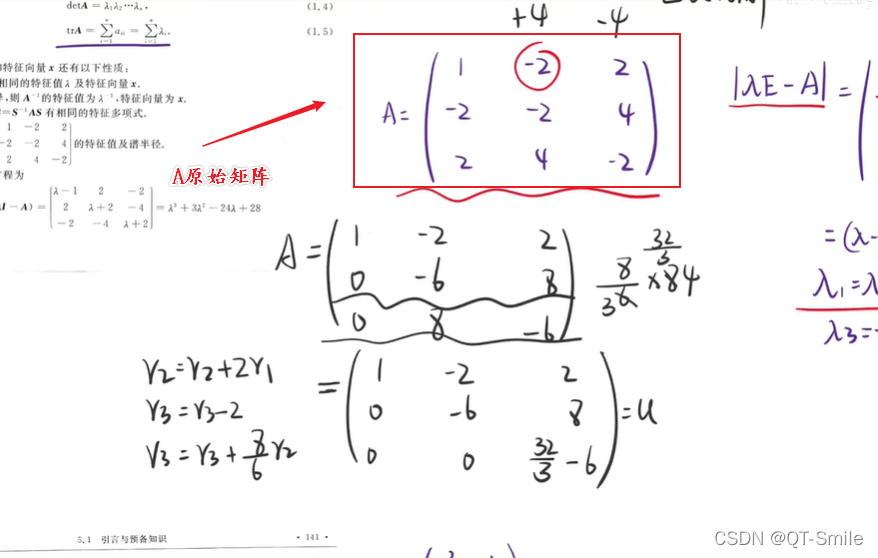 detA = λ₁λ₂⋯λₙ, (1,4)
trA = ∑ aᵢᵢ = ∑ λᵢ. (1,5)
特征向量 x 还有以下性质:
相同的特征值 λ 及特征向量 x.
,则 A⁻¹ 的特征值为 λ⁻¹,特征向量为 x.
=S⁻¹AS 有相同的特征多项式.
1 −2 2
−2 −2 4 的特征值及谱半径.
2 4 −2
程为
I − A) = λ−1 2 −2
2 λ+2 −4 = λ³ + 3λ² − 24λ + 28
−2 −4 λ+2
+4 -4
A= 1 -2 2
-2 -2 4
2 4 -2
A原始矩阵
|λE-A| =
A= 1 -2 2
0 -6 8
0 8 -6
32/3
8/3 × 84
= (λ-
λ₁=λ
λ3=
γ2=γ2+2γ1
γ3=γ3-2
γ3=γ3+8/6γ2
= 1 -2 2
0 -6 8
0 0 32/3 -6
=U
5.1 引言与预备知识 · 141 ·
CSDN @QT-Smile